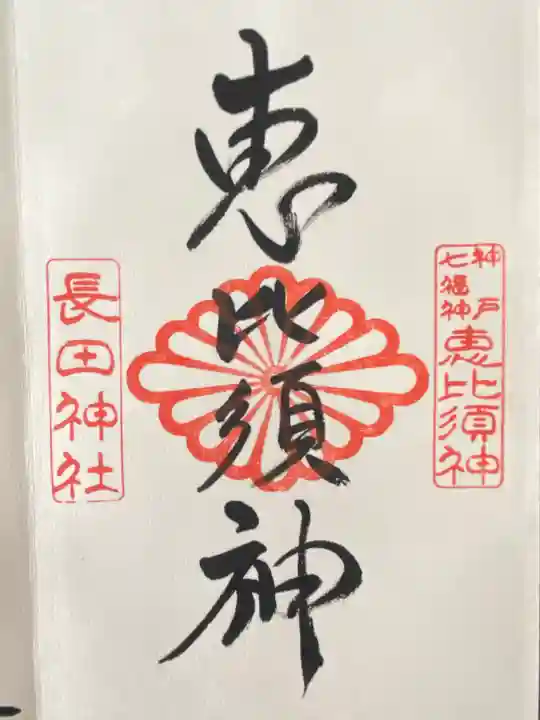 神戸
七福神
恵比須神
恵比須神
長田神社